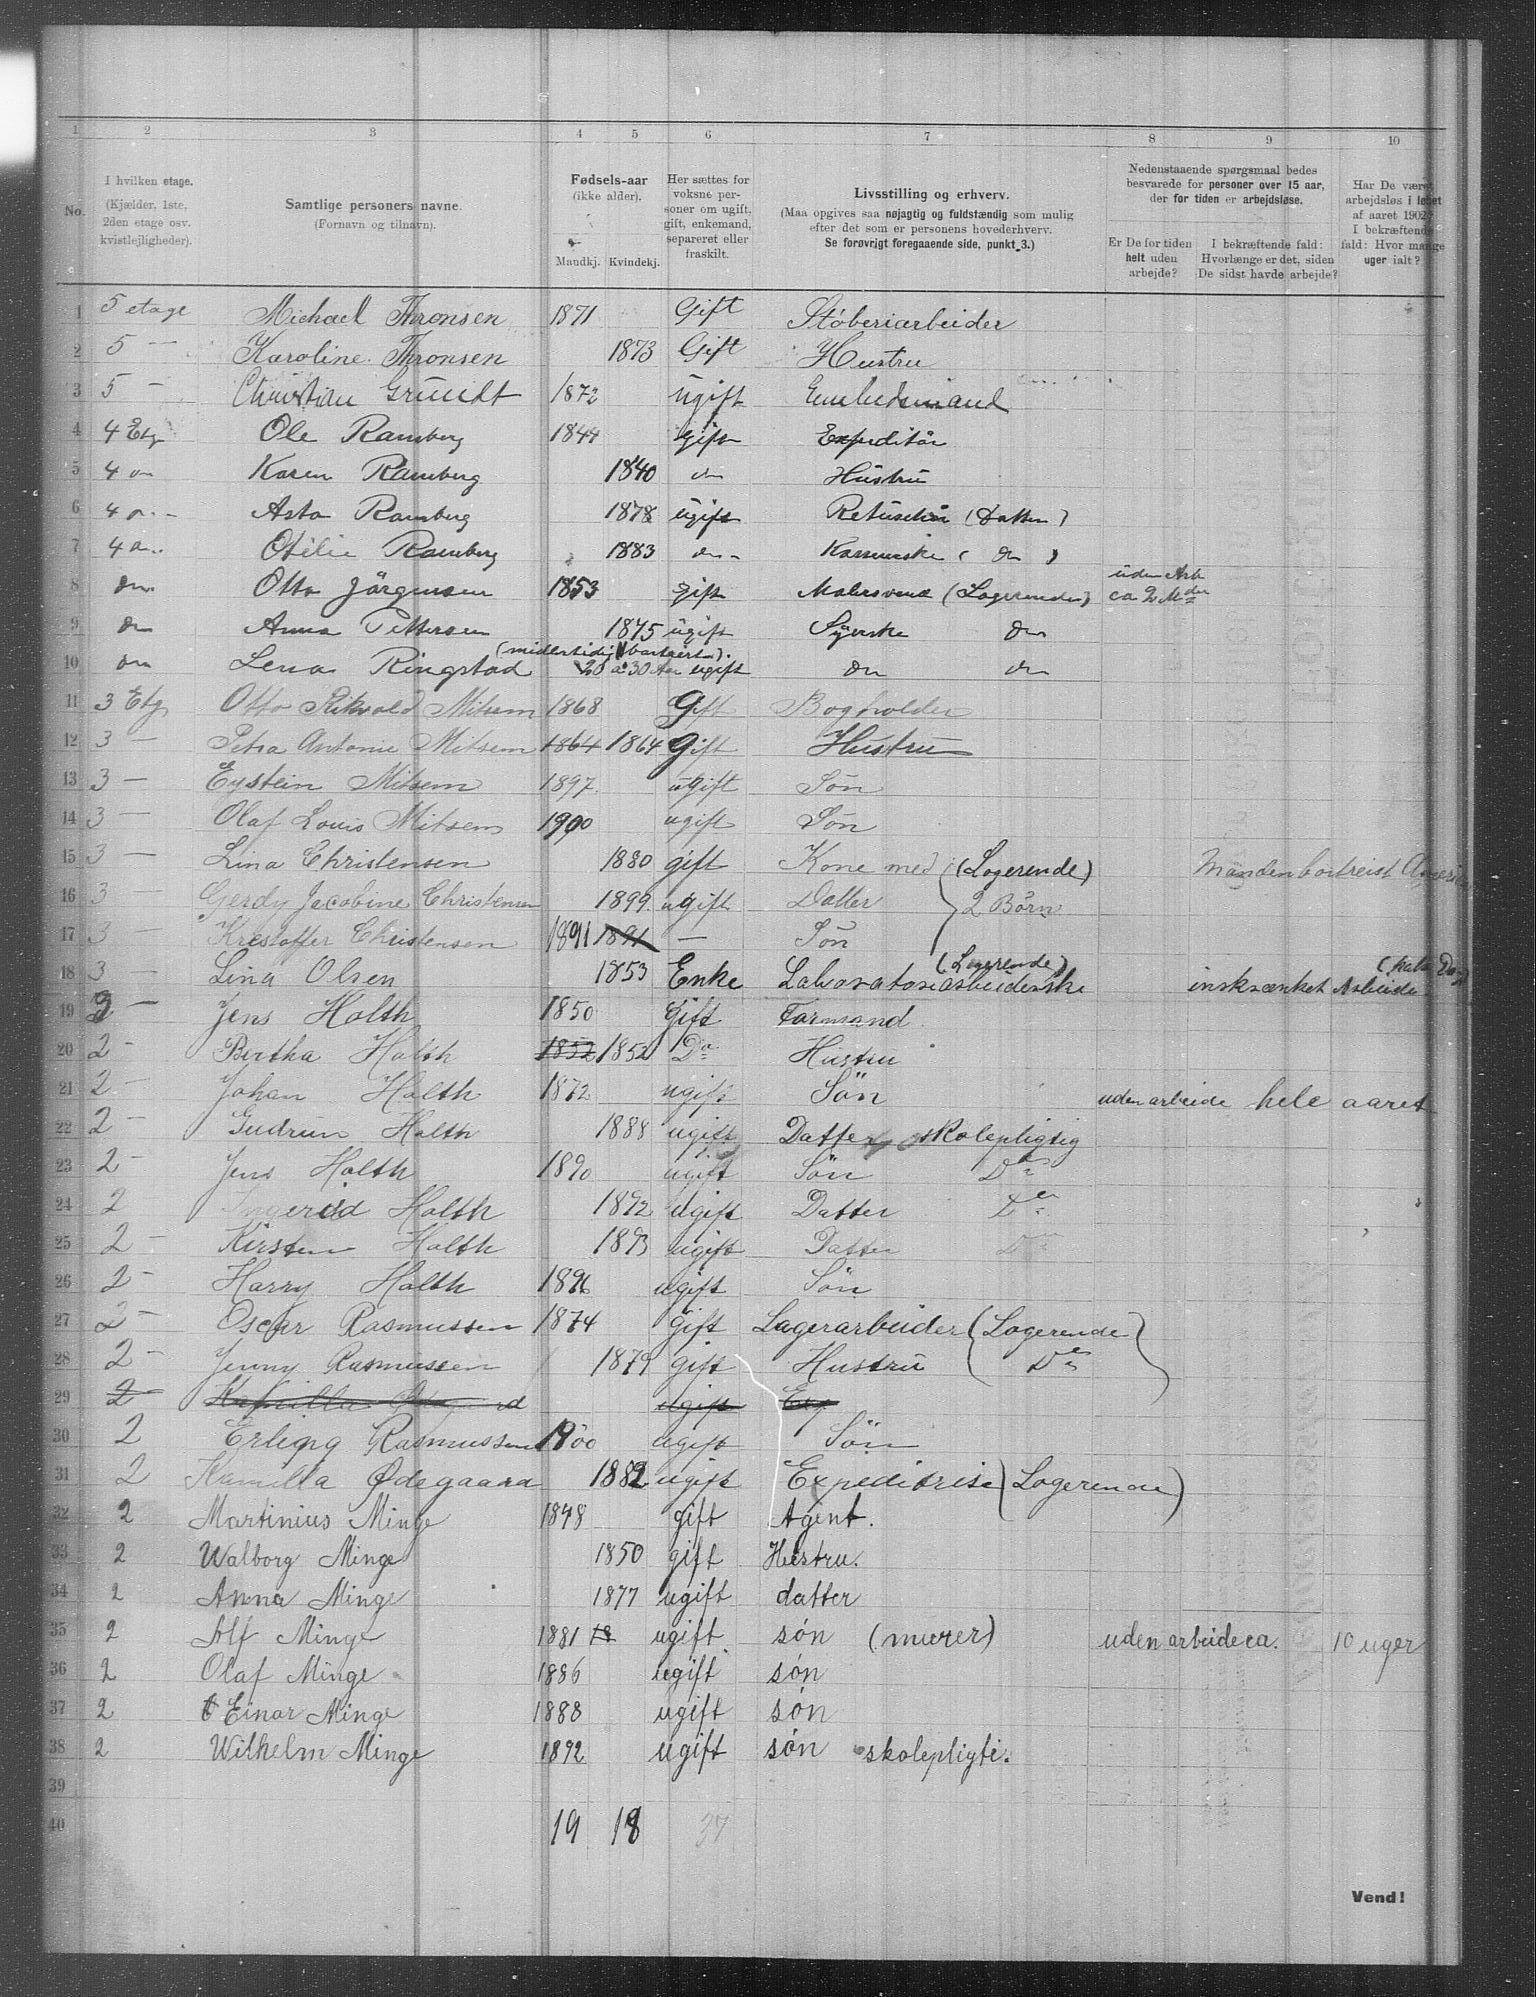 1 2 3 4 5 6 7 8 9 10
No.
I hvilken etage.
(Kjælder, 1ste,
2den etage osv.
kvistlejligheder).
Samtlige personers navne.
(Fornavn og tilnavn).
Fødsels-aar
(ikke alder).
Mandkj. Kvindekj.
Her sættes for
voksne per-
soner om ugift,
gift, enkemand,
separeret eller
fraskilt.
Livsstilling og erhverv.
(Maa opgives saa nøjagtig og fuldstændig som mulig
efter det som er personens hovederhverv.
Se forøvrigt foregaaende side, punkt 3.)
Nedenstaaende spørgsmaal bedes
besvarede for personer over 15 aar,
der for tiden er arbejdsløse.
Er De for tiden
helt uden
arbejde?
I bekræftende fald:
Hvorlænge er det, siden
De sidst havde arbejde?
Har De været
arbejdsløs i løbet
af aaret 1902?
I bekræftende
fald: Hvor mange
uger ialt?
1 5 etage Michael Thronsen 1871 Gift Støberiarbeider
2 5 — Karoline Thronsen 1873 Gift Hustru
3 5 - Christian Grundt 1872 ugift Embedsmand
4 4 Etg Ole Ramberg 1844 gift Expeditør
5 4 Karen Ramberg 1840 do Hustru
6 4 Asta Ramberg 1878 ugift (Datter)
7 4 Otilie Ramberg 1883 do (do)
8 do Otto Jörgensen 1853 gift Malersvend (Logerende) uden Arb ca 2 Mder
9 do Anna Pettersen 1875 ugift Syerske do
(midlertidig bortreist).
10 do Lena Ringstad 25 a 30 Aar ugift do do
11 3 Etg Otto Mitsem 1868 Gift Bogholder
12 3 — Petra Antonie Mitsem 1864 1864 Gift Hustru
13 3 — Eystein Mitsem 1897 ugift Søn
14 3 — Olaf Louis Mitsem 1900 ugift Søn
15 3 — Lina Christensen 1880 gift Kone med (Logerende) Manden bortreist
16 3 — Gerdy Jacobine Christensen 1899 ugift Datter 2 Børn
17 3 — Kristoffer Christensen 1891 1891 — Søn
18 3 — Lina Olsen 1853 Enke Laboratoriearbeiderske (Logerende) inskrænket Arbeide
19 2 — Jens Holth 1850 Gift Formand
20 2 - Bertha Holth 1852 1852 Do Hustru
21 2 - Johan Holth 1872 ugift Søn uden arbeide hele aaret
22 2 - Gudrun Holth 1888 ugift Datter skolepligtig
23 2 - Jens Holth 1890 ugift Søn Do
24 2 Ingerid Holth 1892 Ugift Datter Do
25 2 - Kirsten Holth 1893 ugift Datter Do
26 2 - Harry Holth 1896 ugift Søn
27 2 - Oscar Rasmussen 1874 gift Lagerarbeider (Logerende)
28 2 - Jenny Rasmussen 1879 gift Hustru Do
29 2 ugift Exp
30 2 Erling Rasmussen 1900 ugift Søn
31 2 Kamilla Ødegaard 1882 ugift Expeditrise (Logerende)
32 2 Martinius Minge 1848 gift Agent.
33 2 Walborg Minge 1850 gift Hustru.
34 2 Anna Minge 1877 ugift datter
35 2 Alf Minge 1881 18 ugift søn (murer) uden arbeide ca. 10 uger
36 2 Olaf Minge 1886 ugift søn
37 2 Einar Minge 1888 ugift søn
38 2 Wilhelm Minge 1892 ugift søn skolepligti.
39
40 19 18 37
Vend!